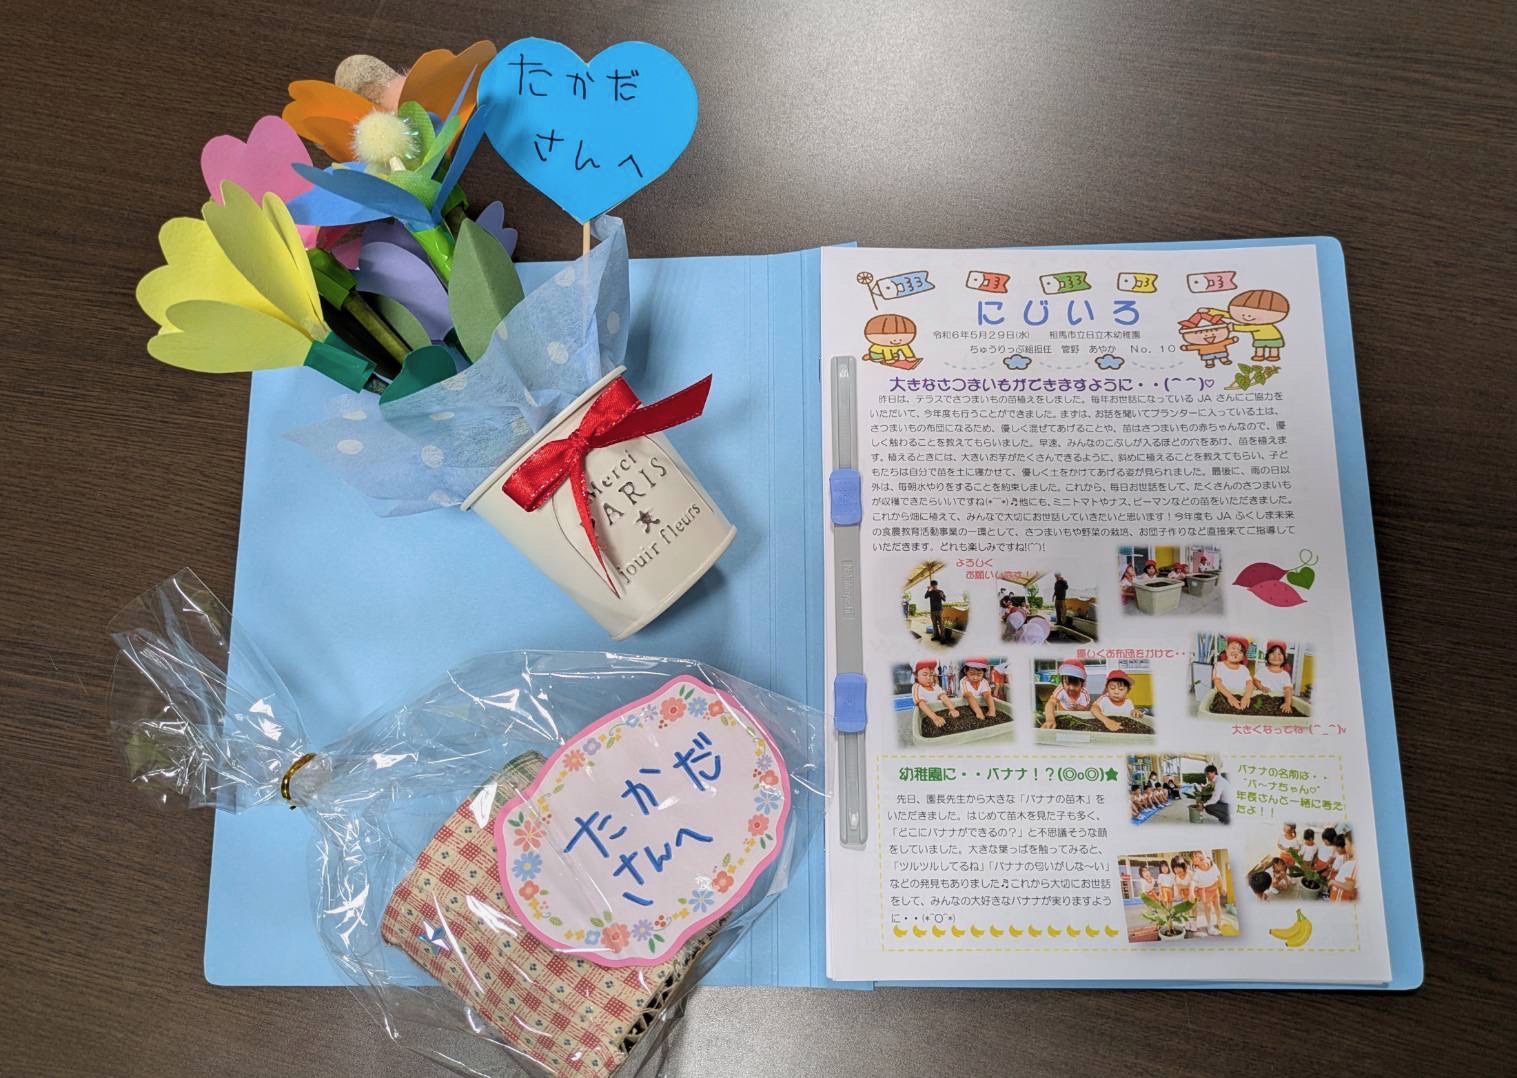 たかだ
さんへ
Merci
PARIS
jouir fleurs
たかだ
さんへ
にじいろ
令和6年5月29日(水)　相馬市立日立木幼稚園
ちゅうりっぷ組担任　菅野　あやか　No. 10
大きなさつまいもができますように・・(^^)♡
昨日は、テラスでさつまいもの苗植えをしました。毎年お世話になっている JA さんにご協力を
いただいて、今年度も行うことができました。まずは、お話を聞いてプランターに入っている土は、
さつまいもの布団になるため、優しく混ぜてあげることや、苗はさつまいもの赤ちゃんなので、優
しく触わることを教えてもらいました。早速、みんなのこぶしが入るほどの穴をあけ、苗を植えま
す。植えるときには、大きいお芋がたくさんできるように、斜めに植えることを教えてもらい、子ど
もたちは自分で苗を土に寝かせて、優しく土をかけてあげる姿が見られました。最後に、雨の日以
外は、毎朝水やりをすることを約束しました。これから、毎日お世話をして、たくさんのさつまいも
が収穫できたらいいですね(*^^*)♬他にも、ミニトマトやナス、ピーマンなどの苗をいただきました。
これから畑に植えて、みんなで大切にお世話していきたいと思います！今年度も JA ふくしま未来
の食農教育活動事業の一環として、さつまいもや野菜の栽培、お団子作りなど直接来てご指導して
いただきます。どれも楽しみですね!(^^)!
よろしく
お願いします！！
優しくお布団をかけて・・
大きくなってね(^_^)v
幼稚園に・・バナナ！？(◎o◎)★
先日、園長先生から大きな「バナナの苗木」を
いただきました。はじめて苗木を見た子も多く、
「どこにバナナができるの？」と不思議そうな顔
をしていました。大きな葉っぱを触ってみると、
「ツルツルしてるね」「バナナの匂いがしな～い」
などの発見もありました♬これから大切にお世話
をして、みんなの大好きなバナナが実りますよう
に・・(*^O^*)
バナナの名前は・・
“バ～ナちゃん♡”
年長さんと一緒に考え
たよ！！